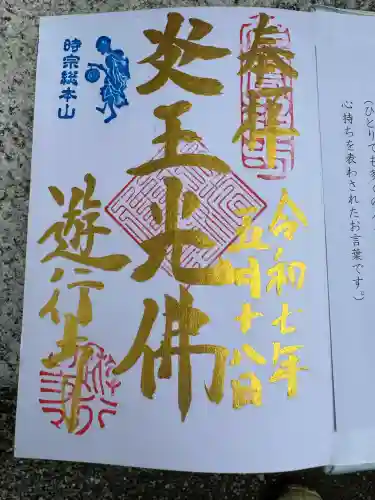 （ひとりでも多くの
心持ちを表わされたお言葉です。）
奉拝
令和七年
五月十八日
炎王光佛
時宗総本山
遊行寺